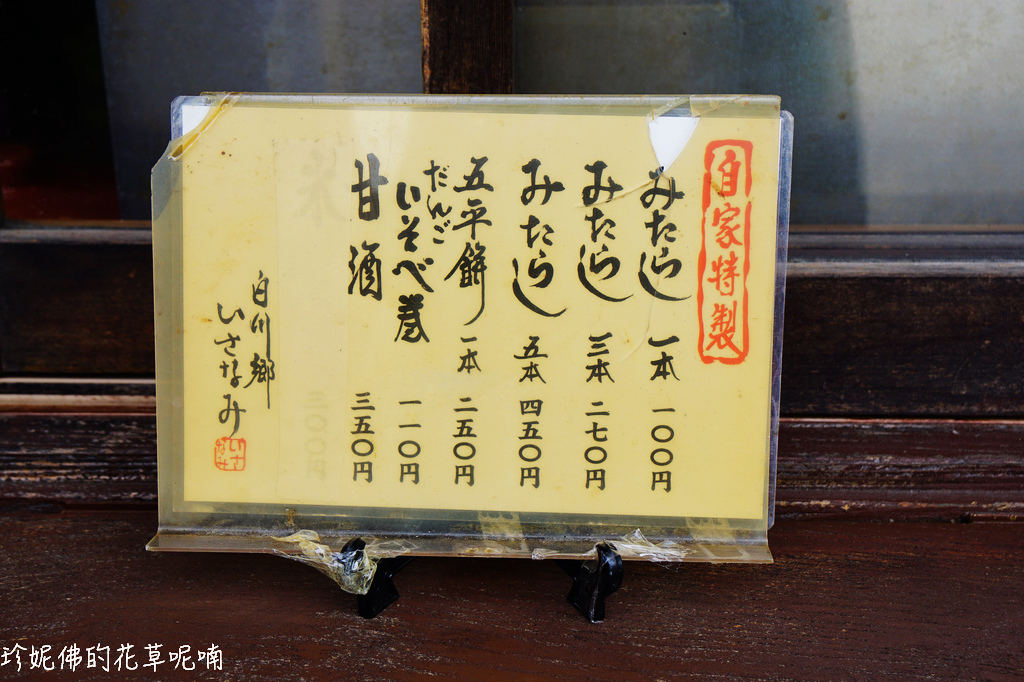 自家特製
みたらし 一本 一〇〇円
みたらし 三本 二七〇円
みたらし 五本 四五〇円
五平餅 一本 二五〇円
だんご
いそべ巻 一一〇円
甘酒 三五〇円
白川郷
いさなみ
いさなみ
珍妮佛的花草呢喃